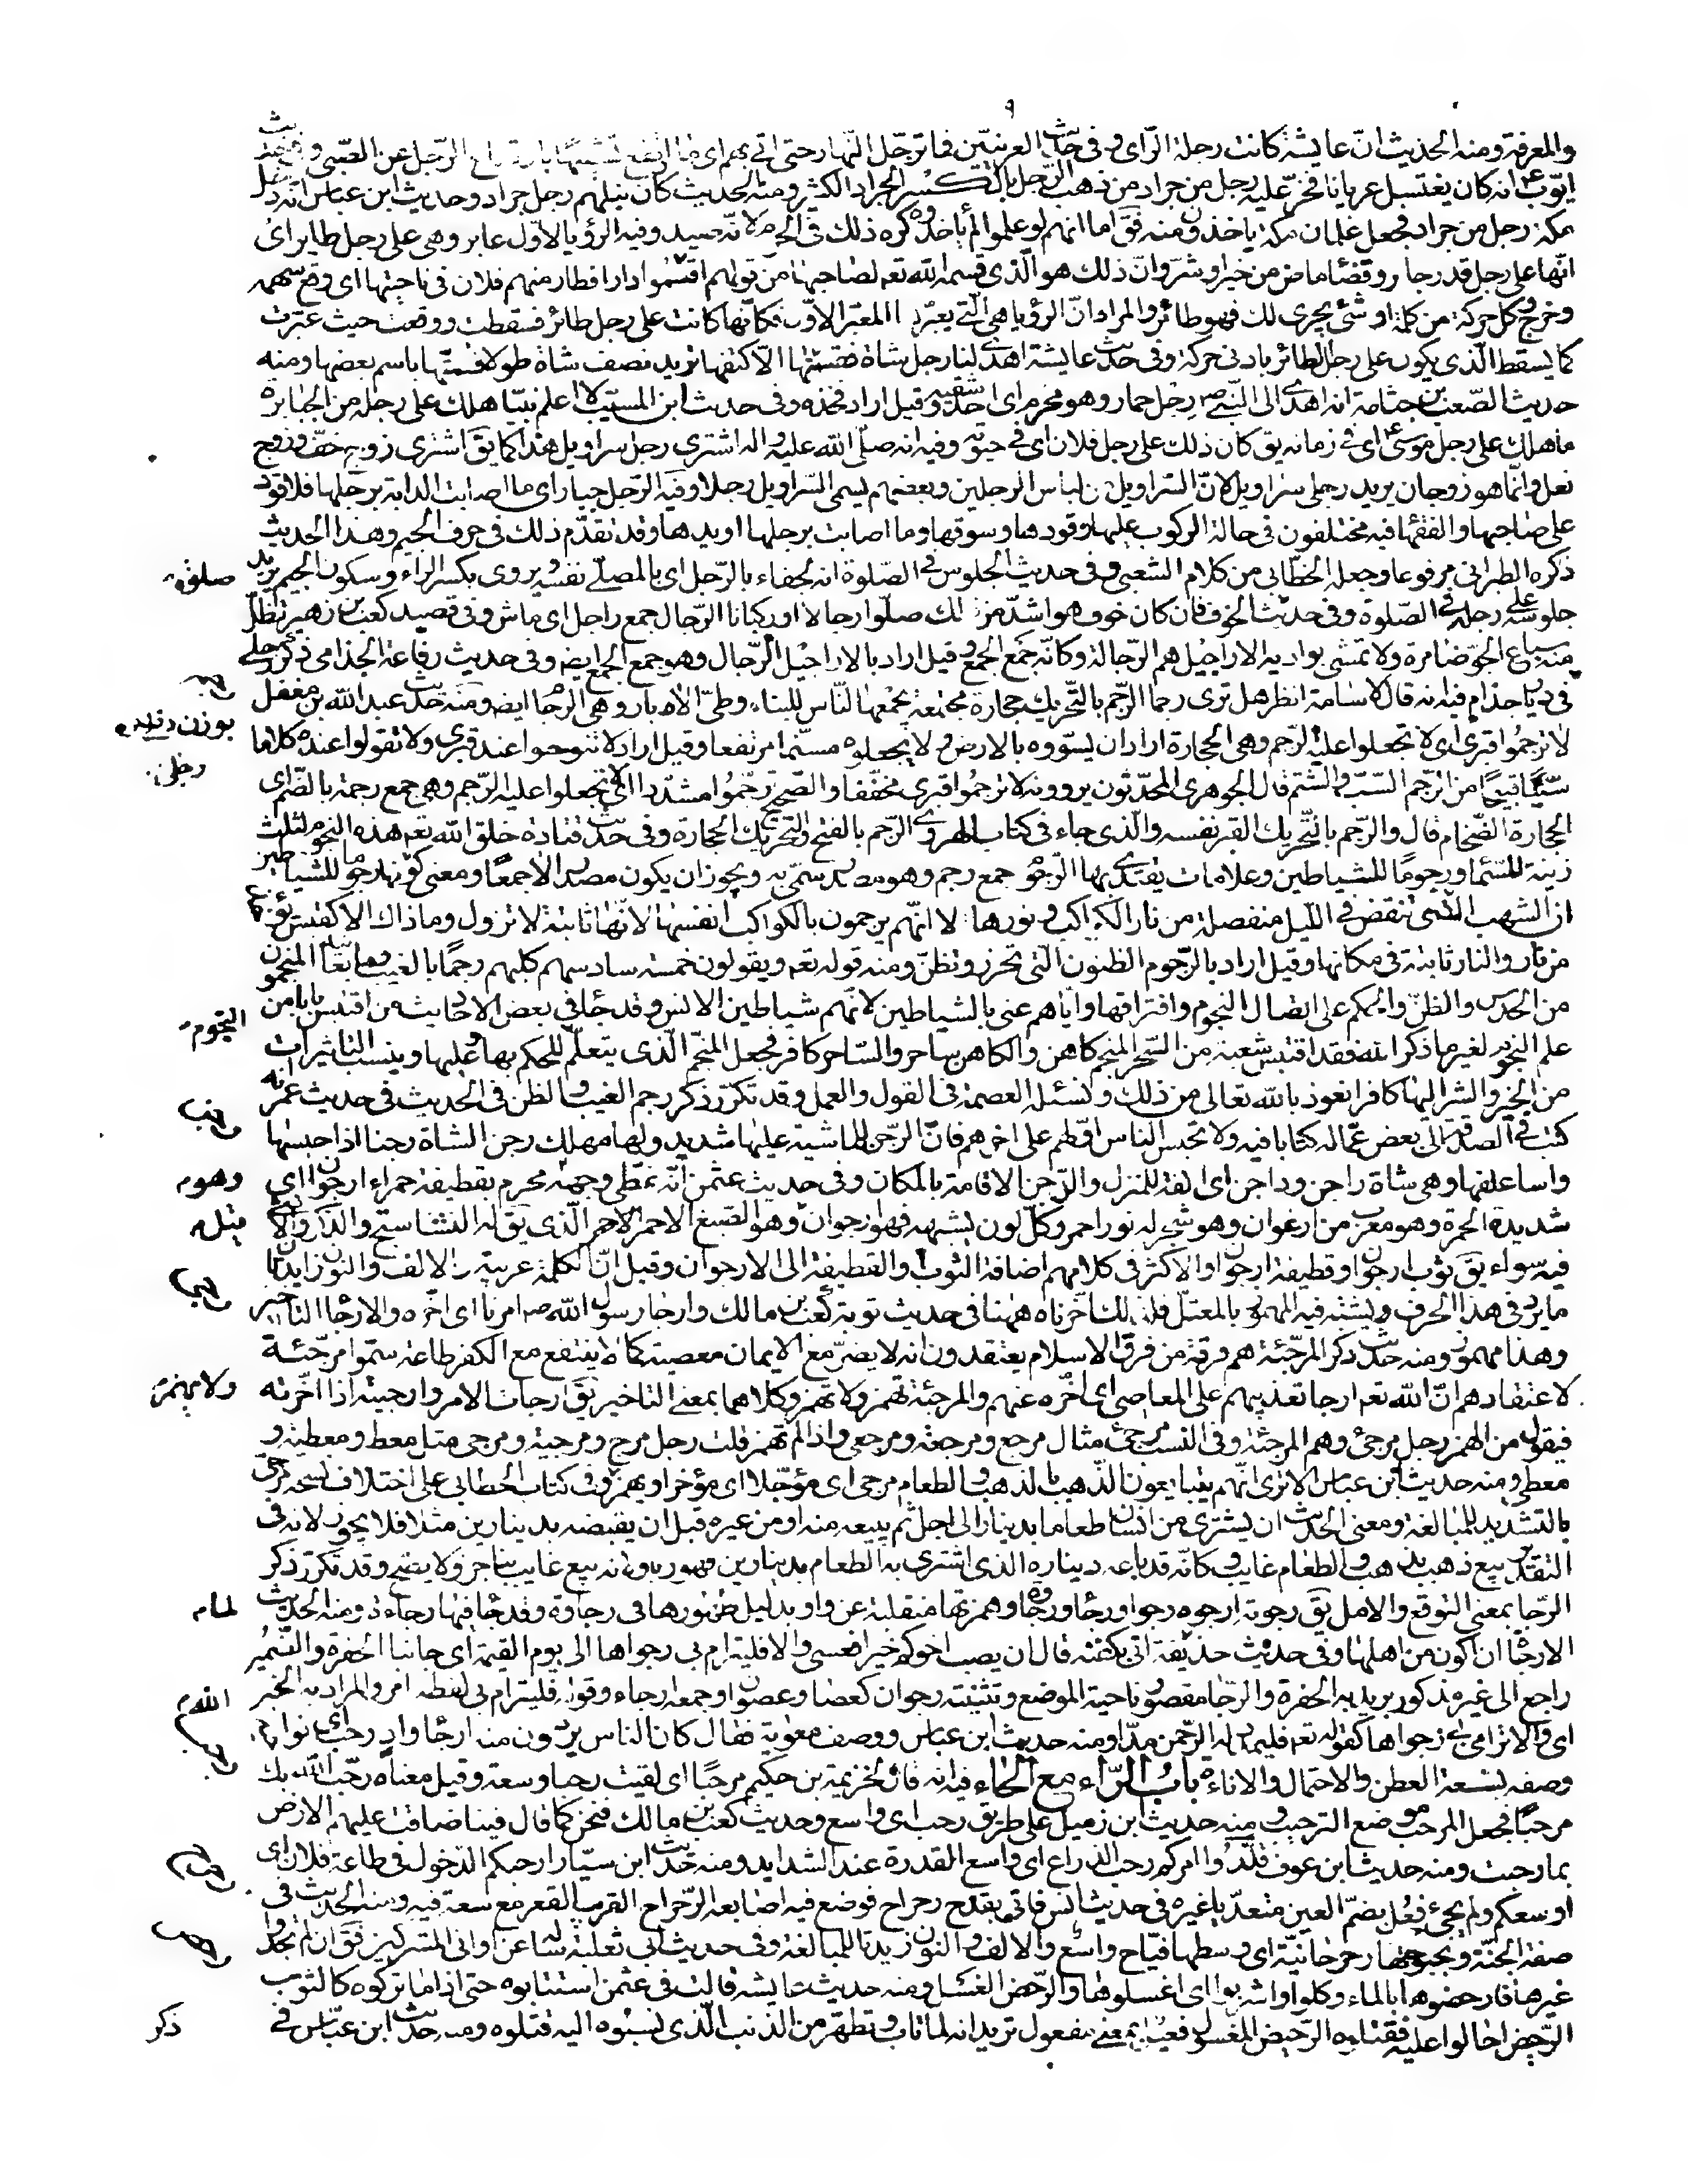 والمعرفة ومنه الحديث انّ عايشة كانت رجلة الرّاى وفى حديث العرنيّين فما ترجّل النّهار حتى اتى بهم اى ما ارتفع تشبيها بارتفاع الرّجل عن الصّبى وفى حديث
ايّوب ع انه كان يغتسل عريانا فخرّ عليه رجل من جراد من ذهب الرّجل بالكسر الجراد الكثير ومنه الحديث كان نبلهم رجل جراد وحديث ابن عباس انه دخل
مكة رجل من جراد فجعل غلمان مكة ياخذون منه فق اما انهم لو علموا لم ياخذوه كره ذلك فى الحرم لانّه صيد وفيه الرؤيا لاوّل عابر وهى على رجل طاير اى
انّها على رجل قدر جار وقضاء ماض من خير او شرّ وانّ ذلك هو الّذى قسمه الله تعه لصاحبها من قولهم اقتسموا دارا فطار منهم فلان فى ناحيتها اى وقع سهمه
وخرج وكل حركة من كلمة او شئ يجرى لك فهو طائر والمراد انّ الرؤيا هى الّتى يعبّرها المعبّر الاوّل فكانّها كانت على رجل طائر فسقطت ووقعت حيث عبّرت
كما يسقط الّذى يكون على رجل الطائر بادنى حركة وفى حديث عايشة اهدى لنا رجل شاة فقسمتها الّا كتفها تريد نصف شاة طولا فسمّتها باسم بعضها ومنه
حديث الصّعب بن جثامة انه اهدى الى النّبى ص رجل حمار وهو محرم اى احد شقيه وقيل اراد فخذه وفى حديث ابن المسيّب لا اعلم نبيّا هلك على رجله من الجبابرة
ما هلك على رجل موسى ع اى فى زمانه يق كان ذلك على رجل فلان اى فى حيوته وفيه انه صلّى الله عليه واله اشترى رجل سراويل هذا كما يق اشترى زوج خفّ وزوج
نعل وانّما هو زوجان يريد رجلى سراويل لانّ السّراويل من لباس الرجلين وبعضهم يسمى السّراويل رجلا وفيه الرّجل جبار اى ما اصابت الدابة برجلها فلا قود
على صاحبها والفقها فيه مختلفون فى حالة الركوب عليها وقودها وسوقها وما اصابت برجلها او يدها وقد تقدّم ذلك فى حرف الجيم وهذا الحديث
ذكره الطبرانى مرفوعا وجعله الخطّابى من كلام الشعبى وفى حديث الجلوس فى الصّلوة انه لجفاء بالرّجل اى بالمصلّى نفسه ويروى بكسر الراء وسكون الجيم يريد
صلوة
جلوسه على رجله فى الصّلوة وفى حديث الخوف فان كان خوف هو اشدّ من ذلك صلّوا رجالا او ركبانا الرّجال جمع راجل اى ماش وفى قصيد كعب بن زهير تظلّ
منه سباع الجوّ ضامرة ولا تمشّى بواديه الاراجيل هم الرّجالة وكانّه جمع الجمع وقيل اراد بالاراجيل الرّجال وهو جمع الجمع ايض وفى حديث رفاعة الجذامى ذكر رجلى
بوزن دفلى
فى ديار جذام فيه انه قال لاسامة انظر هل ترى رجما الرّجم بالتّحريك حجارة مجتمعة يجمعها النّاس للبناء وطىّ الابار وهى الرّجام ايض ومنه حديث عبد الله بن مغفل
لا ترجموا قبرى اى لا تجعلوا عليه الرّجم وهى الحجارة اراد ان يسوّوه بالارض ولا يجعلوه مسنّما مرتفعا وقيل اراد لا تنوحوا عند قبرى ولا تقولوا عنده كلاما
سيّئا قبيحا من الرّجم السّبّ والشّتم قال الجوهرى المحدّثون يروونه لا ترجموا قبرى مخفّفا والصّحيح لا ترجّموا مشدّدا اى لا تجعلوا عليه الرّجم وهى جمع رجمة بالضّم اى
الحجارة الضّخام قال والرّجم بالتّحريك القبر نفسه والّذى جاء فى كتاب الهروى الرّجم بالفتح والتحريك الحجارة وفى حديث قتادة خلق الله تعه هذه النجوم لثلث
زينة للسّماء ورجوما للشياطين وعلامات يهتدى بها الرّجوم جمع رجم وهو مصدر سمّى به ويجوز ان يكون مصدرا لا جمعا ومعنى كونها رجوما للشياطين
ان الشهب الّتى تنقض فى اللّيل منفصلة من نار الكواكب ونورها لا انّهم يرجمون بالكواكب انفسها لانّها ثابتة لا تزول وما ذاك الا كقبس يؤخذ
من نار والنار ثابتة فى مكانها وقيل اراد بالرّجوم الظنون الّتى تحرز وتظنّ ومنه قوله تعه ويقولون خمسة سادسهم كلبهم رجما بالغيب وما يعانيه المنجّمون
من الحدس والظنّ والحكم على اتصال النجوم وافتراقها وايّاهم عنى بالشياطين لانّهم شياطين الانس وقد جاء فى بعض الاحاديث من اقتبس بابا من
النجوم
علم النجوم لغير ما ذكر الله فقد اقتبس شعبة من السّحر المنجّم كاهن والكاهن ساحر والسّاحر كافر فجعل المنجّم الّذى يتعلّم للحكم بها وعليها وينسب التاثيرات
من الخير والشر اليها كافرا نعوذ بالله تعالى من ذلك ونسئله العصمة فى القول والعمل وقد تكرّر ذكر رجم الغيب والظن فى الحديث فى حديث عمر انه
كتب فى الصدقة الى بعض عمّاله كتابا فيه ولا تحبس الناس اوّلهم على اخرهم فانّ الرّجن للماشية عليها شديد ولها مهلك رجن الشاة رجنا اذا حبسها
واساء علفها وهى شاة راجن وداجن اى الفة للمنزل والرّجن الاقامة بالمكان وفى حديث عثمن انّه غطّى وجهه وهو محرم بقطيفة حمراء ارجوان اى
وهو
شديدة الحمرة وهو معرّب من ارغوان وهو شجر له نور احمر وكلّ لون يشبهه فهو ارجوان وهو الصّبغ الاحمر الاحمر الّذى يق له النشاستج والذّكر والانثى
مثله
فيه سواء يق ثوب ارجوان وقطيفة ارجوان والاكثر فى كلامهم اضافة الثوب والقطيفة الى الارجوان وقيل انّ الكلمة عربية والالف والنون زايدتان
ما يرد فى هذا الحرف ويشتبه فيه المهموز بالمعتلّ فلذلك اخّرناه وههنا فى حديث توبة كعب بن مالك وارجا رسول الله ص امرنا اى اخّره والارجاء التاخير
وهذا مهموز ومنه حديث ذكر المرجئة هم فرقة من فرق الاسلام يعتقدون انه لا يضرّ مع الايمان معصية كما لا ينفع مع الكفر طاعة سمّوا مرجئة
لاعتقادهم انّ الله تعه ارجا تعذيبهم على المعاصى اى اخّره عنهم والمرجئة تهمز ولا تهمز وكلاهما بمعنى التاخير يق ارجات الامر وارجيته اذا اخّرته
ولا تهمز
فيقول من الهمز رجل مرجئ وهم المرجئة وفى النسب مرجئ مثال مرجع ومرجعة ومرجعى واذا لم تهمز قلت رجل مرج ومرجية ومرجى مثل معط ومعطية و
معطى ومنه حديث ابن عباس الا ترى انّهم يتبايعون الذّهب بالذّهب والطعام مرجى اى مؤجّلا اى مؤخرا ويهمز وفى كتاب الخطابى على اختلاف نسخه مرجّى
بالتشديد للمبالغة ومعنى الحديث ان يشترى من انسان طعاما بدينار الى اجل ثم يبيعه منه او من غيره قبل ان يقبضه بدينارين مثلا فلا يجوز لانه فى
التقدير بيع ذهب بذهب والطعام غايب فكانّه قد باعه ديناره الذى اشترى به الطعام بدينارين فهو ربا ولانه بيع غايب بناجز ولا يصح وقد تكرّر ذكر
الرّجا بمعنى التوقع والامل يق رجوته ارجوه رجوا ورجاء ورجاوة وهمزتها منقلبة عن واو بدليل ظهورها فى رجاوة وقد جاء فيها رجاءة ومنه الحديث
الا رجاء ان اكون من اهلها وفى حديث حذيفة اتى بكفنه قال ان يصب اخوكم خيرا فعسى والا فليترام بى رجواها الى يوم القيمة اى جانبا الحفرة والضّمير
راجع الى غير مذكور يريد به الحفرة والرّجا مقصور ناحية الموضع وتثنيته رجوان كعصا وعصوان وجمعه ارجاء وقوله فليترام بى لفظه امر والمراد به الخبر
اى والا ترامى بى رجواها كقوله تعه فليمدد له الرّحمن مدّا ومنه حديث ابن عباس ووصف معوية فقال كان الناس يردون منه ارجاء واد رحب اى نواحيه
وصفه بسعة العطن والاحتمال والاناءة باب الرّاء مع الحاء فيه انه قال لخزيمة بن حكيم مرحبا اى لقيت رحبا وسعة وقيل معناه رحّب الله بك
مرحبا فجعل المرحب موضع الترحيب ومنه حديث ابن زميل على طريق رحب اى واسع وحديث كعب بن مالك فنحن كما قال فينا ضاقت عليهم الارض
بما رحبت ومنه حديث ابن عوف قلّدوا امركم رحب الذراع اى واسع القدرة عند الشدايد ومنه حديث ابن سيّار ارحبكم الدّخول فى طاعة فلان اى
اوسعكم ولم يجئ فعُل بضمّ العين متعدّيا غيره فى حديث انس فاتى بقدح رحراح فوضع فيه اصابعه الرّحراح القريب القعر مع سعة فيه ومنه الحديث فى
صفة الجنّة وبحبوحتها رحرحانيّة اى وسطها فيّاح واسع والالف والنون زيدتا للمبالغة وفى حديث ابى ثعلبة ساله عن اوانى المشركين فق ان لم تجدوا
غيرها فارحضوها بالماء وكلوا واشربوا اى اغسلوها والرّحض الغسل ومنه حديث عايشة قالت فى عثمن استتابوه حتى اذا ما تركوه كالثوب
الرّحيض احالوا عليه فقتلوه الرّحيض المغسول فعيل بمعنى مفعول تريد انه لما تاب وتطهّر من الذنب الّذى نسبوه اليه قتلوه ومنه حديث ابن عبّاس فى
ذكر